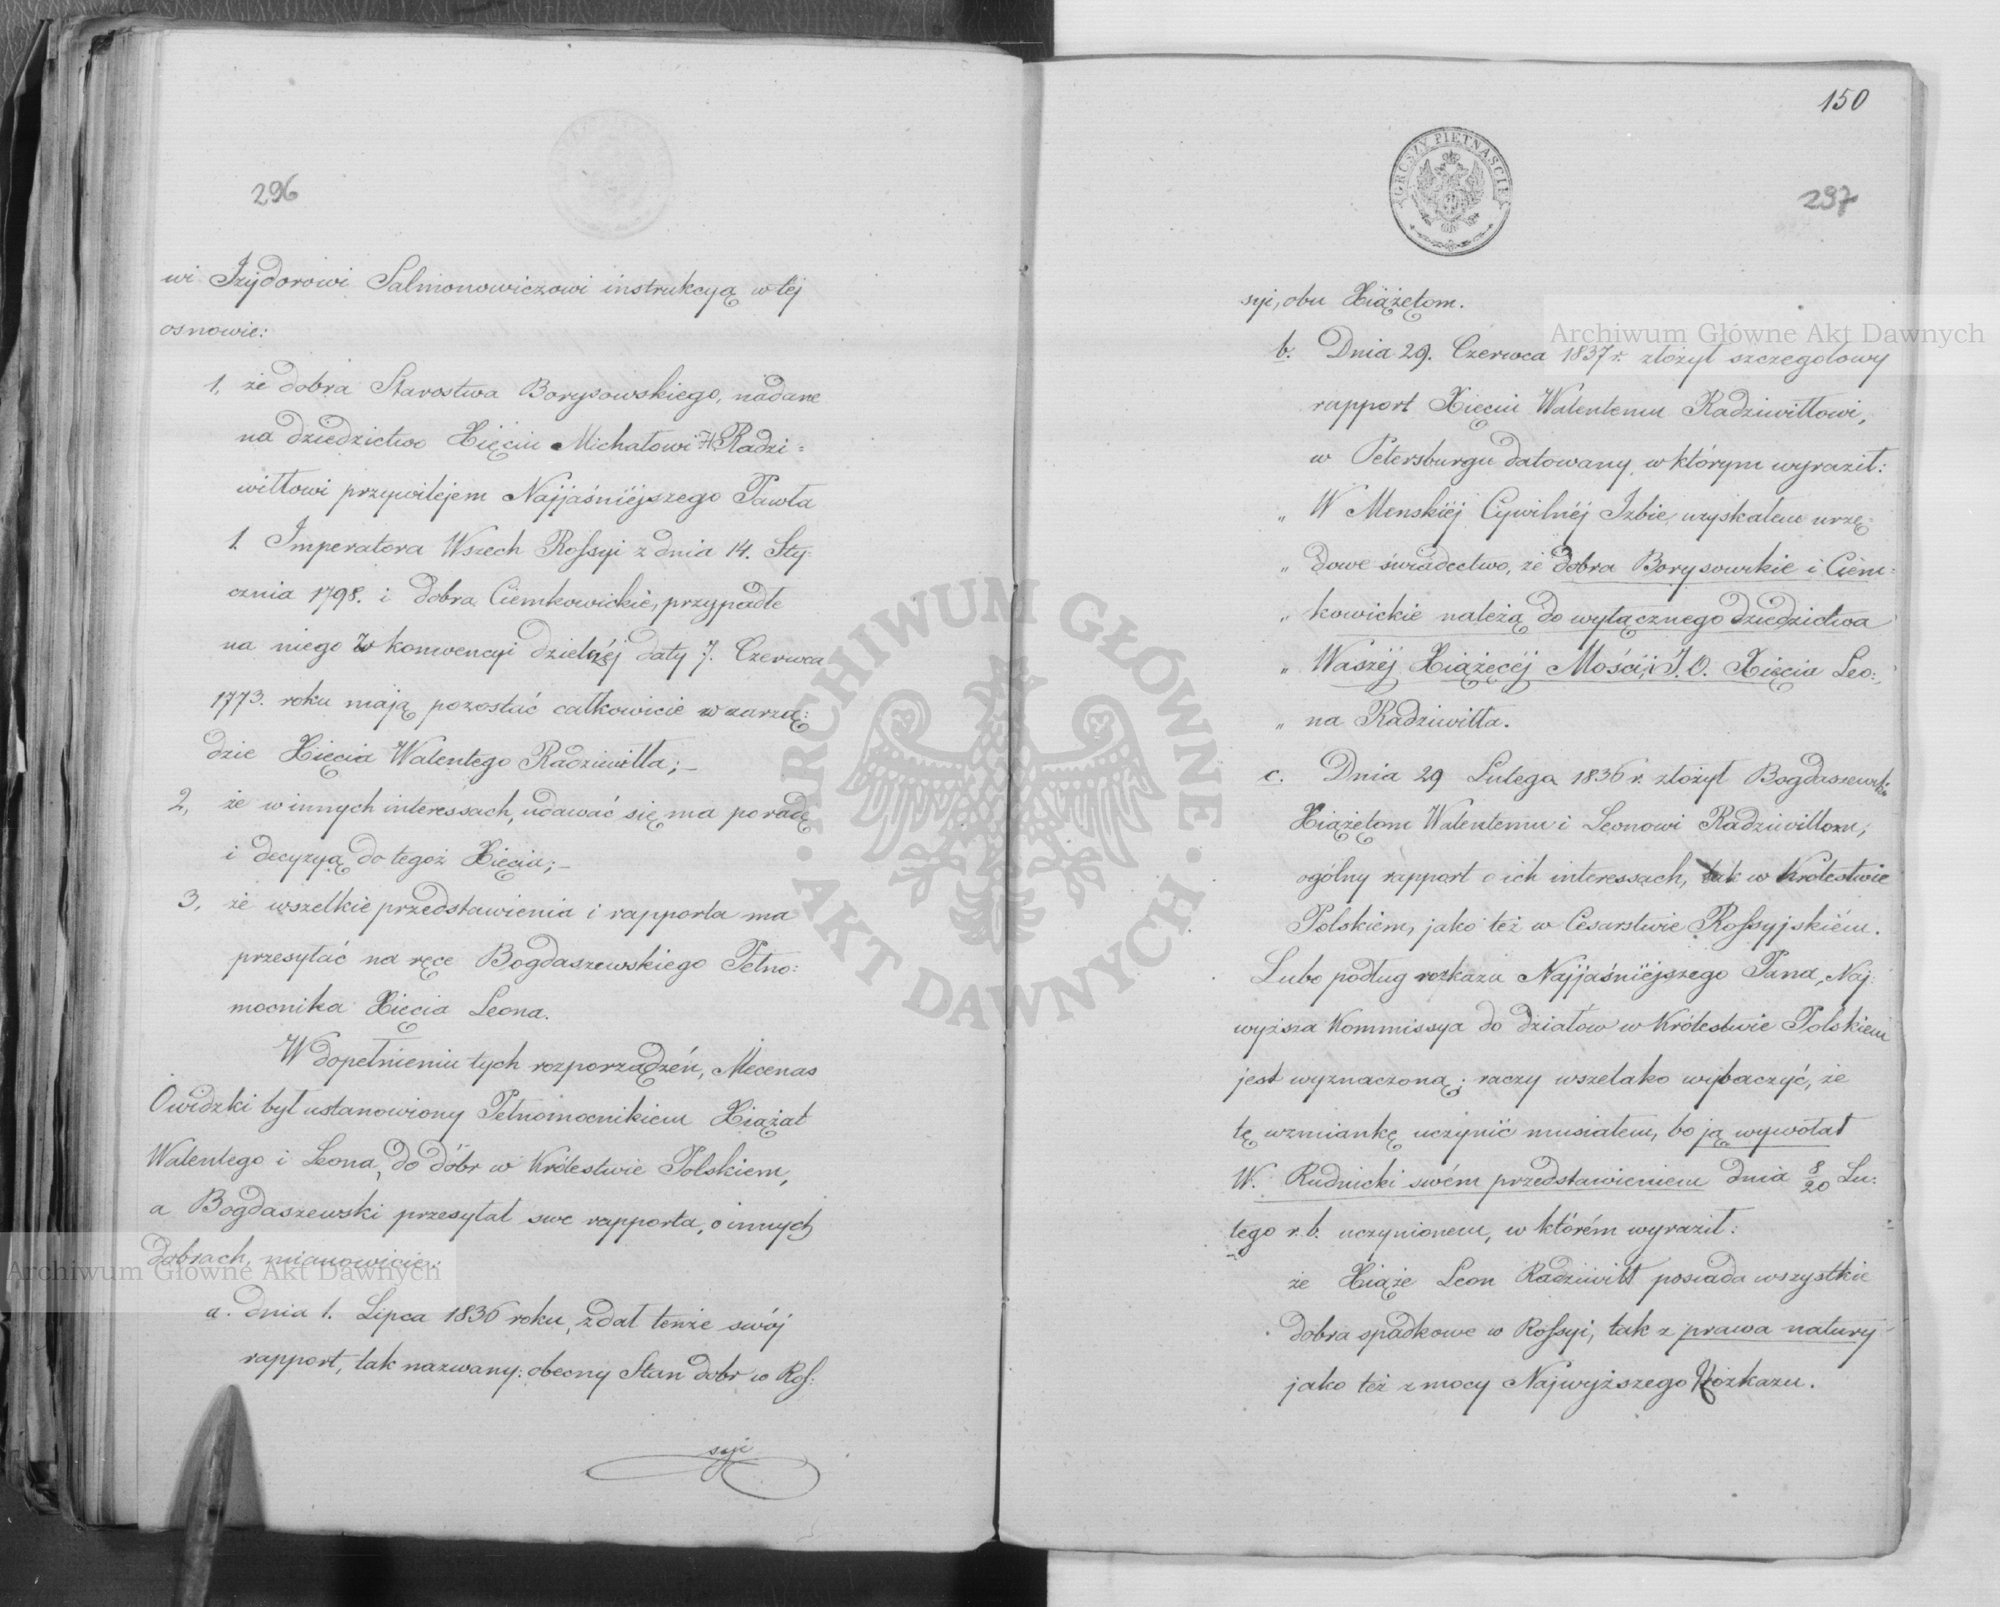 296
wi Jzydorowi Salmonowiczowi instrukcyą w tej
osnowie:
1, że dobra Starostwa Borysowskiego, nadane
na dziedzictwo Xięciu Michałowi H. Radzi=
wiłłowi przywilejem Najjaśniejszego Pawła
1. Imperatora Wszech Rossyi z dnia 14. Sty=
cznia 1798. i dobra Ciemkowickie, przypadłe
na niego w konwencyi dzielnéj daty 7. Czerwca
1773. roku mają pozostać całkowicie w zarzą:
dzie Xięcia Walentego Radziwiłła; –
2, że w innych interessach, udawać się ma po radę
i decyzyą do tegoż Xięcia; –
3, że wszelkie przedstawienia i rapporta ma
przesyłać na ręce Bogdaszewskiego Pełno:
mocnika Xięcia Leona.
W dopełnieniu tych rozporządzeń, Mecenas
Owidzki był ustanowiony Pełnomocnikiem Xiążąt
Walentego i Leona, do dóbr w Królestwie Polskiem,
a Bogdaszewski przesyłał swe rapporta, o innych
dobrach, mianowicie:
a. dnia 1. Lipca 1836 roku, zdał tenże swój
rapport, tak nazwany: obecny Stan dobr w Ros:
syi
150
GROSZY PIĘTNAŚCIE
297
syi, obu Xiążętom.
b. Dnia 29. Czerwca 1837 r. złożył szczegołowy
rapport Xięciu Walentemu Radziwiłłowi,
w Petersburgu datowany, w którym wyraził:
„ W Menskiéj Cywilnéj Izbie, uzyskałem urzę:
„ dowe świadectwo, że dobra Borysowskie i Ciem:
„ kowickie należą do wyłącznego dziedzictwa
„ Waszéj Xiążęcéj Mości, i J. O. Xięcia Leo:
„ na Radziwiłła.
c. Dnia 29 Lutego 1836 r. złożył Bogdaszewski
Xiążętom Walentemu i Leonowi Radziwiłłom,
ogólny rapport o ich interessach, tak w Królestwie
Polskiem, jako też w Cesarstwie Rossyjskiém.
Lubo podług rozkazu Najjaśniejszego Pana, Naj:
wyższa Kommissya do działów w Królestwie Polskiem
jest wyznaczoną; raczy wszelako wybaczyć, że
tę wzmiankę uczynić musiałem, bo ją wywołał
W. Rudnicki swém przedstawieniem dnia 8/20 Lu:
tego r. b. uczynionem, w którém wyraził:
że Xiąże Leon Radziwiłł posiada wszystkie
dobra spadkowe w Rossyi, tak z prawa natury
jako też z mocy Najwyższego Rozkazu.
Archiwum Główne Akt Dawnych
Archiwum Główne Akt Dawnych
ARCHIWUM GŁÓWNE
AKT DAWNYCH